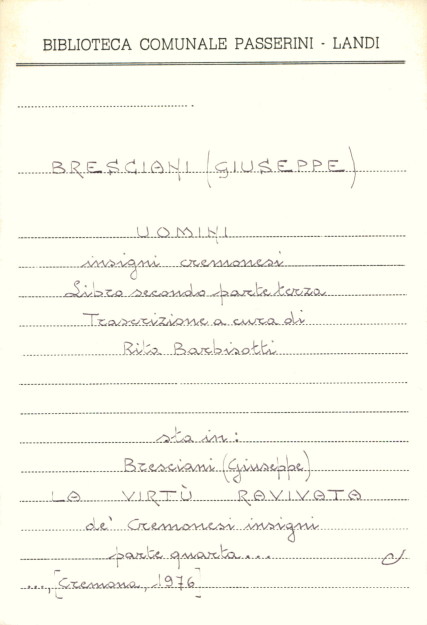 BIBLIOTECA COMUNALE PASSERINI - LANDI
BRESCIANI (GIUSEPPE)
UOMINI
insigni cremonesi
Libro secondo parte terza
Trascrizione a cura di
Rita Barbisotti
sta in:
Bresciani (Giuseppe)
LA VIRTÙ RAVIVATA
de' Cremonesi insigni
parte quarta...
..., [Cremona, 1976]